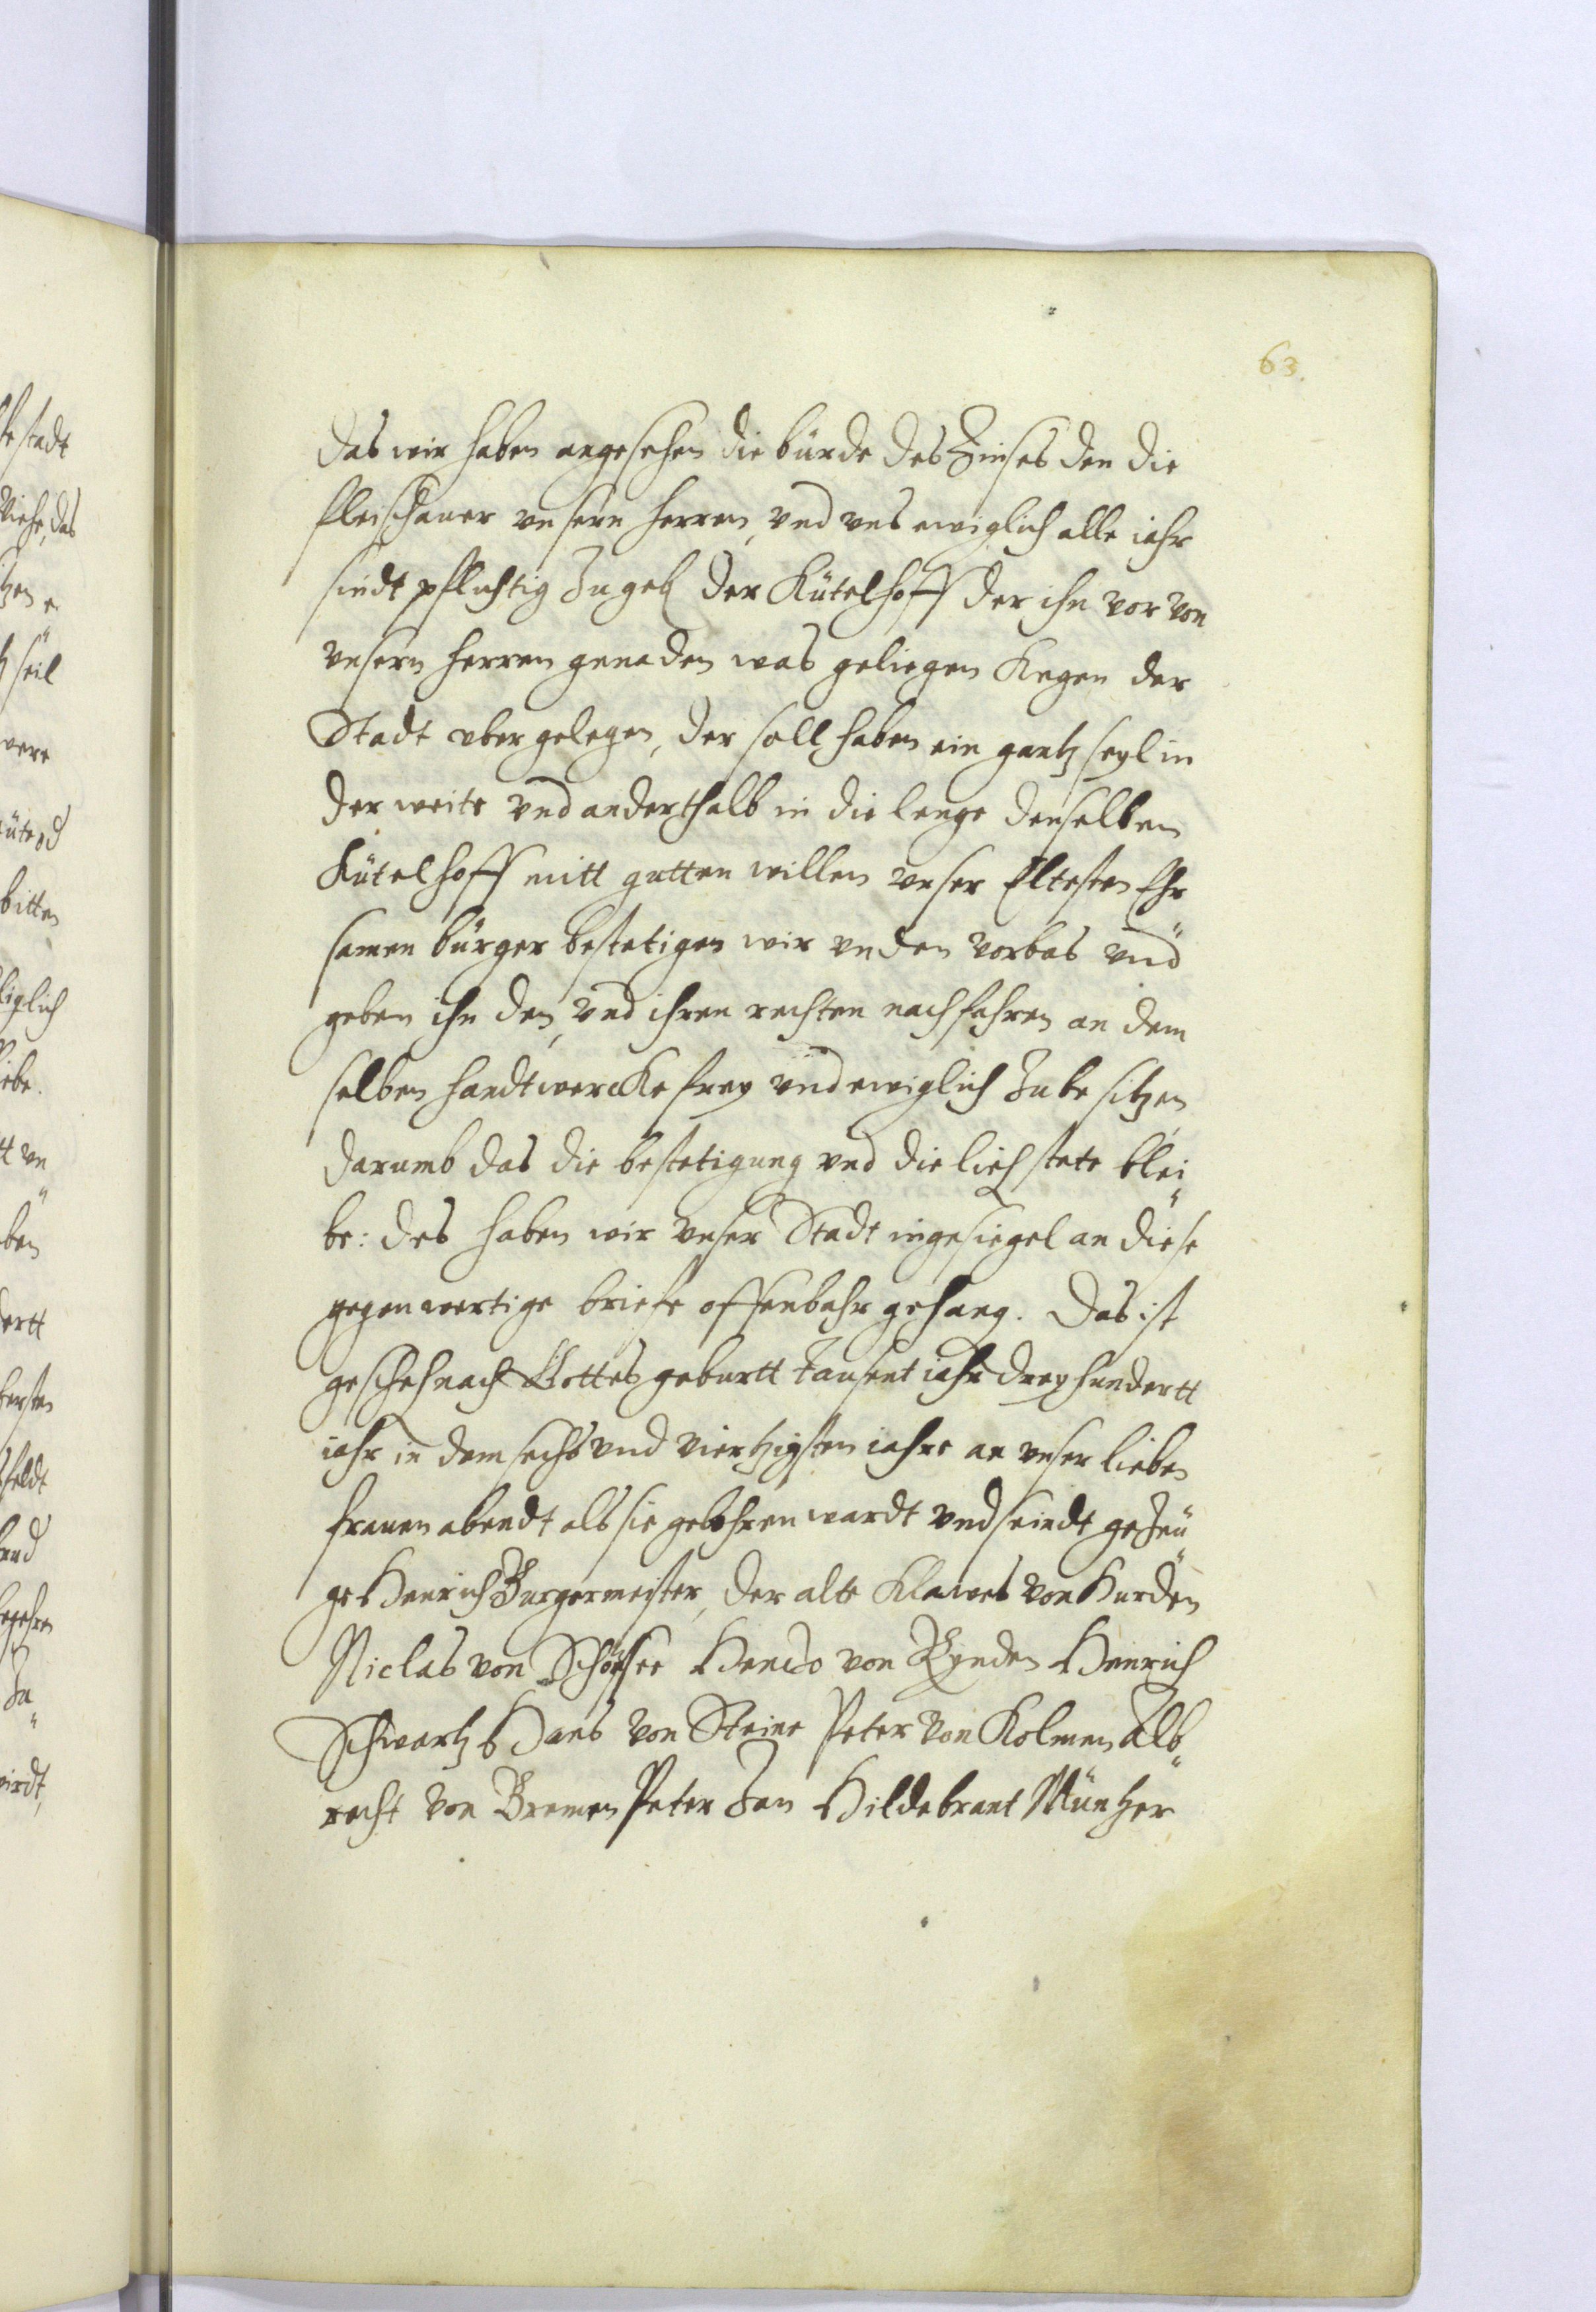 63.
das wir haben angesehen die bürde des Zinses den die
fleischauer unsern herren, und uns ewiglich alle iahr
sindt pflichtig Zugeb der Kütelhoff der ihn vor von
unsern herren genaden was geliegen Kegen der
Stadt uber gelegen, der soll haben ein gantz seyl in
der weite und anderthalb in die lenge denselben
Kütelhoff mitt gutten willen unser Eltesten Ehr
samen bürger bestetigen wir vnden vorbas und
geben ihn den, und ihren rechten nachfahren an dem
selben handtwercke frey und ewiglich Zu besitzen
darumb das die bestetigung und die lieh stete blei
be: des haben wir unser Stadt ingesiegel an diese
gegenwertige briefe offenbahr gehang. Das ist
gescheh nach Gottes geburtt tausent iahr dreyhundertt
iahr in dem sechs und viertzigsten iahre an unser lieben
frauen abendt als sie gebohren wardt und seindt geZeu
ge Henrich Burgermeister, der alte Klawes von Hurden
Niclas von Schönsee Henço von Rynden Henrich
Schwartz Hans von Steine Peter von Kolmen Alb
recht von Bremen Peter Jan Hildebrant Müntzer